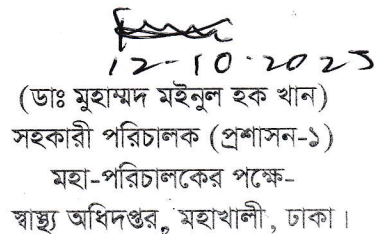 12-10-2025
(ডাঃ মুহাম্মদ মইনুল হক খান)
সহকারী পরিচালক (প্রশাসন-১)
মহা-পরিচালকের পক্ষে-
স্বাস্থ্য অধিদপ্তর, মহাখালী, ঢাকা।